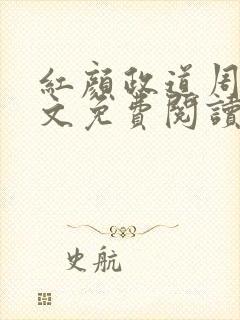 紅顏政道周
文免費閱讀
史航